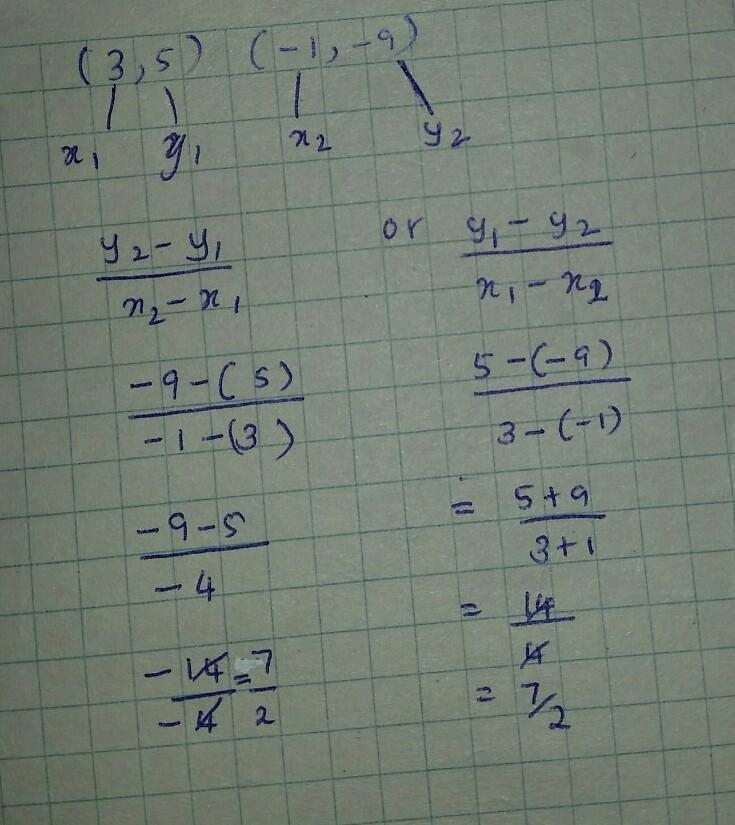 (3,5) (-1,-9)
x₁ y₁ x₂ y₂
y₂-y₁ / x₂-x₁ or y₁-y₂ / x₁-x₂
-9-(5) / -1-(3) 5-(-9) / 3-(-1)
-9-5 / -4 = 5+9 / 3+1
-14 / -4 = 7 / 2 = 14 / 4
= 7/2